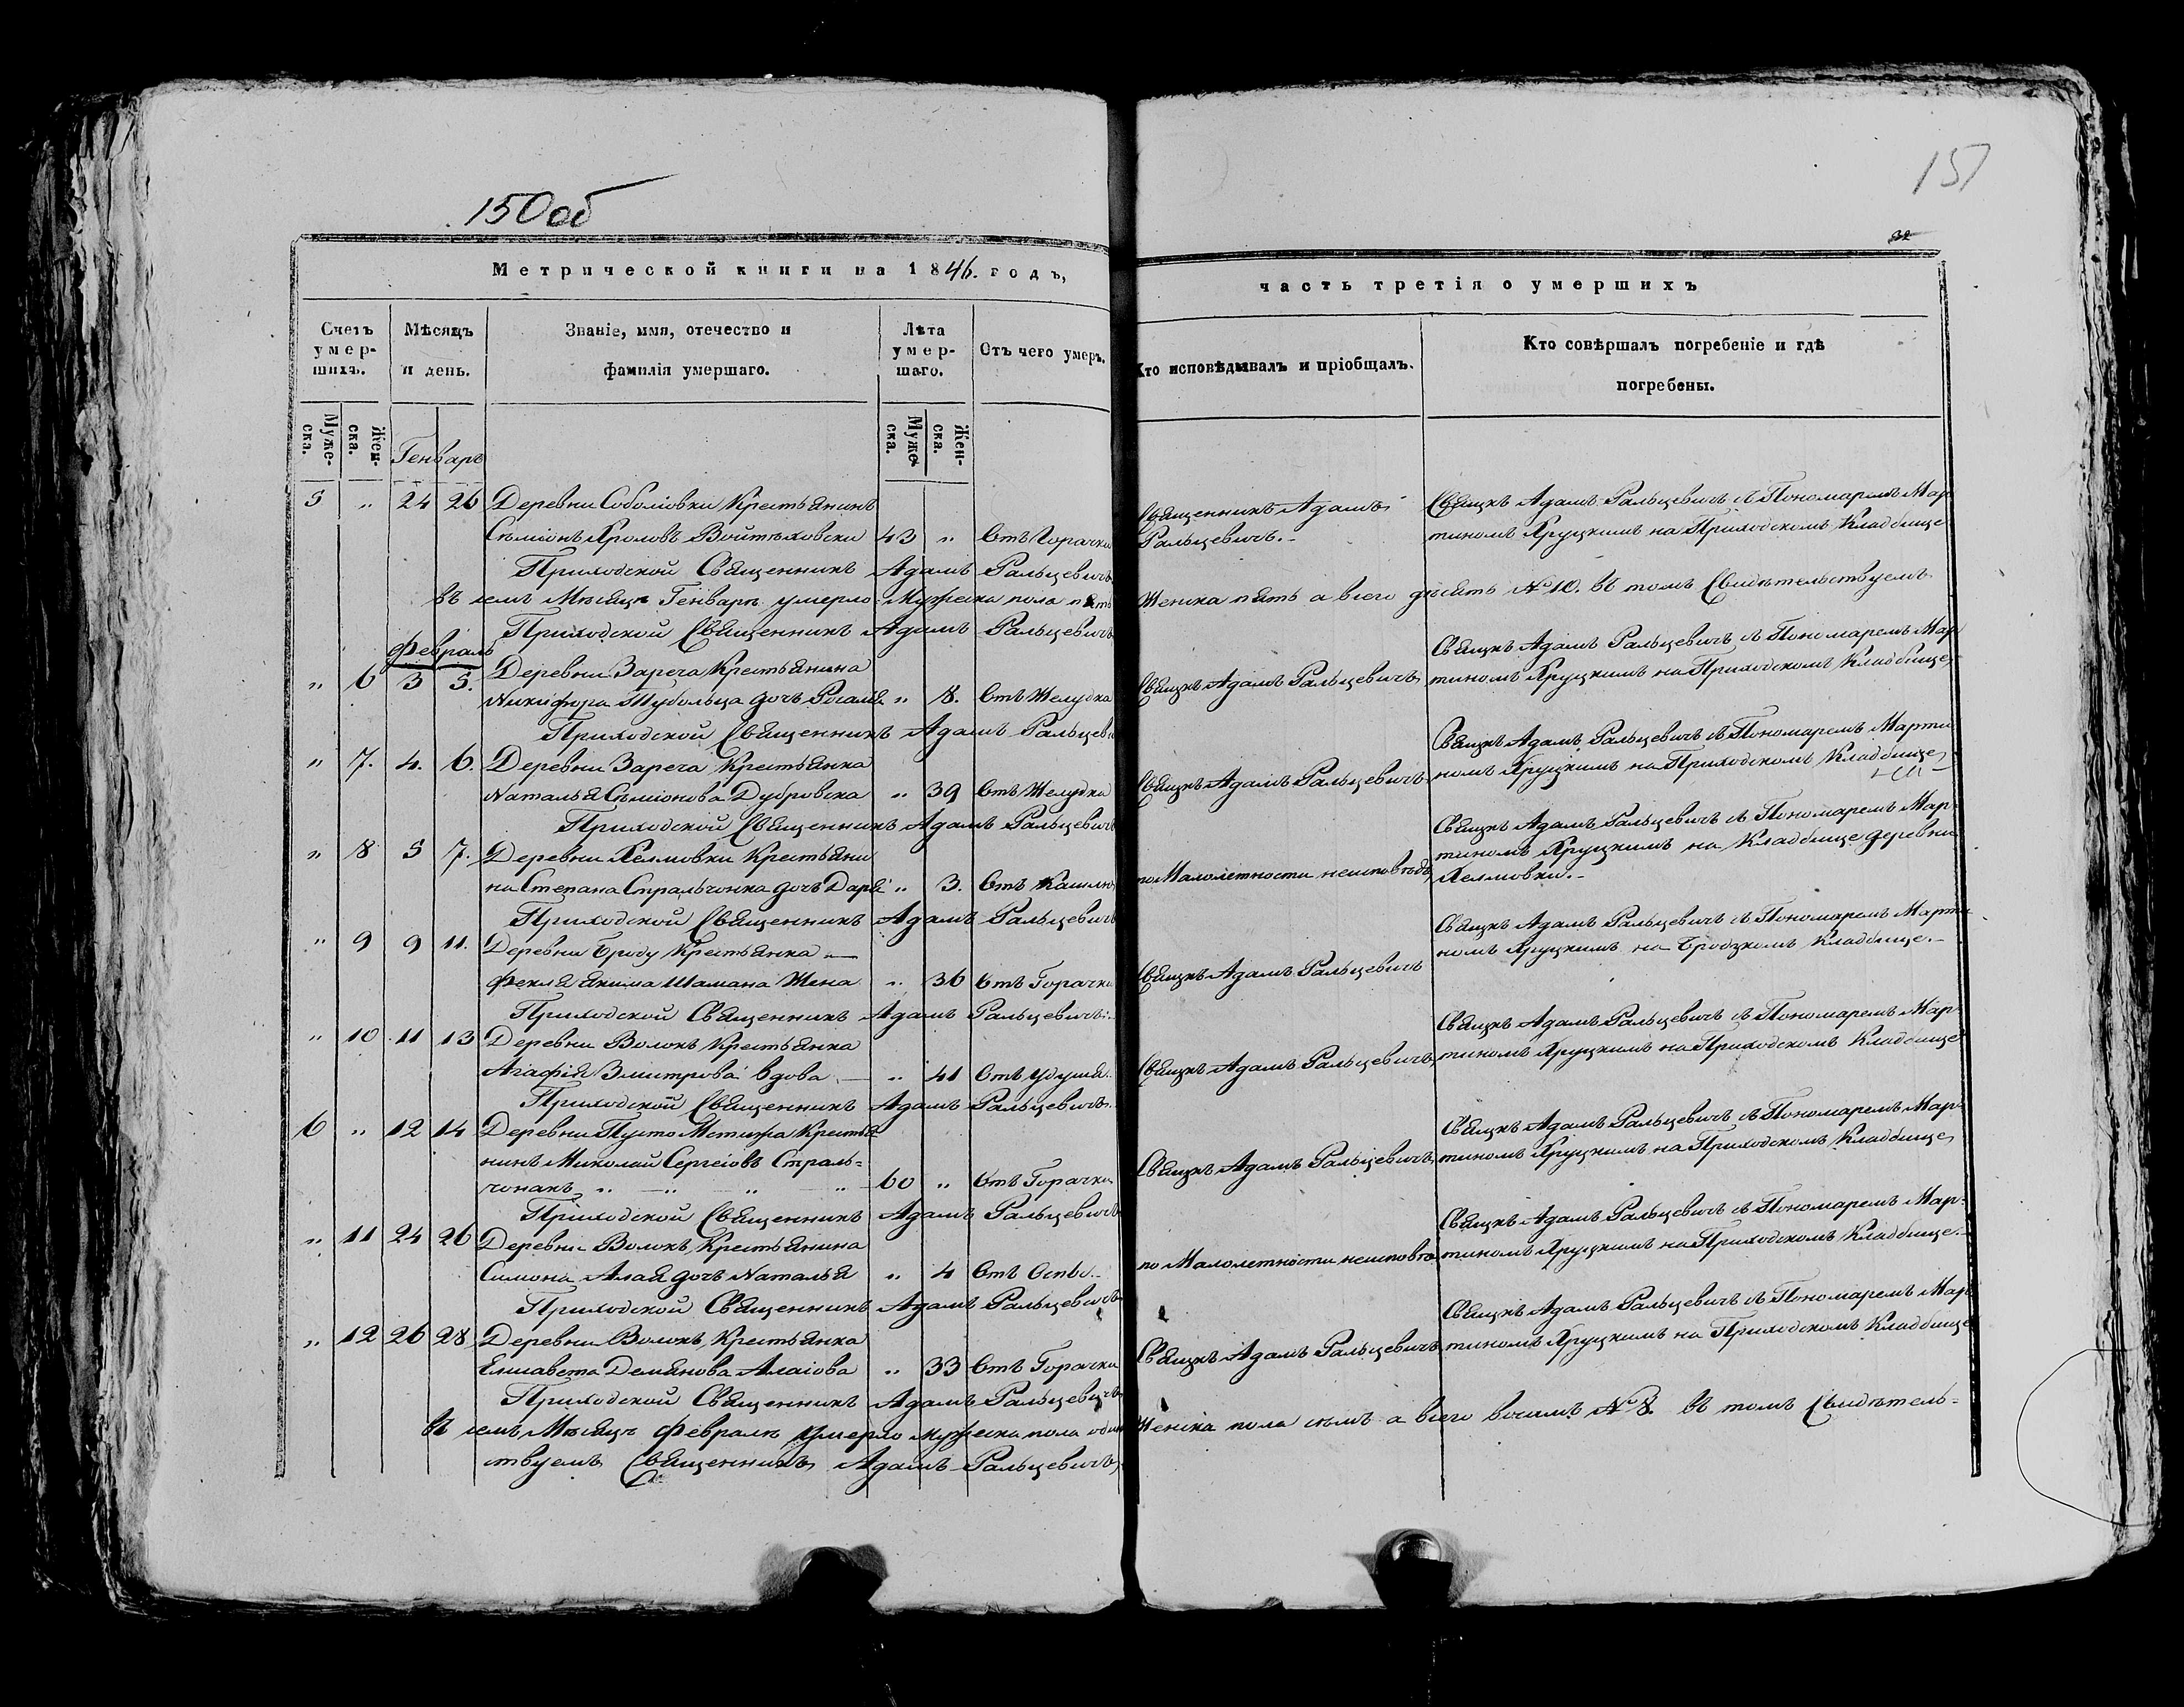 150об
151
32
Метрической книги на 1846. годъ,
часть третія о умершихъ
Счетъ умер-шихъ.
Мѣсяцъ и день.
Званіе, имя, отечество и фамилія умершаго.
Лѣта умер-шаго.
Отъ чего умеръ.
Кто исповѣдывалъ и пріобщалъ.
Кто совѣршалъ погребеніе и гдѣ погребены.
Муже-ска.
Жен-ска.
Генварь
Муже-ска.
Жен-ска.
5 „ 24 26 Деревни Соболіовки Крестьянинъ
Сѣміонъ Войтѣховски 43 „ Отъ Горачки
Священникъ Адамъ
Ральцевичъ.-
Свящнъ Адамъ Ральцевичъ съ Пономаремъ Мар
тиномъ Хруцкимъ на Приходскомъ Кладбище
Приходской Священникъ Адамъ Ральцевичъ
въ семъ Мѣсяцѣ Генварѣ умерло Мужеска пола пять
Женска пять а всего десять №10. въ томъ Свидѣтельствуемъ
Приходской Священникъ Адамъ Ральцевичъ
Февраль
„ 6 3 5. Деревни Зареча Крестьянина
Никифора дочъ „ 8. Отъ Желудка
Свящнъ Адамъ Ральцевичъ
Свящнъ Адамъ Ральцевичъ съ Пономаремъ Мар
тиномъ Хруцкимъ на Приходскомъ Кладбище
Приходской Священникъ Адамъ Ральцеви
„ 7. 4. 6. Деревни Зареча Крестьянка
Наталья Сѣміонова Дубровска „ 39 Отъ Желудка
Свящнъ Адамъ Ральцевичъ
Свящнъ Адамъ Ральцевичъ съ Пономаремъ Марти
номъ Хруцкимъ на Приходскомъ Кладбище
Приходской Священникъ Адамъ Ральцевичъ
„ 8 5 7. Деревни Хелмовки Крестьяни
на Степана Стральчонка дочъ Даря „ 3. Отъ Кашлю
по Малолетности неисповѣд
Свящнъ Адамъ Ральцевичъ съ Пономаремъ Мар
тиномъ Хруцкимъ на Кладбище деревни
Хелмовки.-
Приходской Священникъ Адамъ Ральцевичъ
„ 9 9 11. Деревни Броду Крестьянка
Фекля Якима Шамана Жена „ 36 Отъ Горачки
Свящнъ Адамъ Ральцевичъ
Свящнъ Адамъ Ральцевичъ съ Пономаремъ Марти
номъ Хруцкимъ на Бродзкомъ Кладбище.-
Приходской Священникъ Адамъ Ральцевичъ.
„ 10 11 13 Деревни Волокъ Крестьянка
Агафія Змитрова вдова „ 41 Отъ Удушя.
Свящнъ Адамъ Ральцевичъ
Свящнъ Адамъ Ральцевичъ съ Пономаремъ Мар
тиномъ Хруцкимъ на Приходскомъ Кладбище
Приходской Священникъ Адамъ Ральцевичъ.
6 „ 12 14 Деревни Пусто Мстижа Крестья
нинъ Миколай Сергеіовъ Страль=
чонакъ „ „ „ „ 60 „ Отъ Горачки
Свящнъ Адамъ Ральцевичъ
Свящнъ Адамъ Ральцевичъ съ Пономаремъ Мар
тиномъ Хруцкимъ на Приходскомъ Кладбище
Приходской Священникъ Адамъ Ральцевичъ
„ 11 24 26 Деревни Волокъ Крестьянина
Симона Алая дочъ Наталья „ 4 Отъ Оспы.-
по Малолетности неисповѣ
Свящнъ Адамъ Ральцевичъ съ Пономаремъ Мар-
тиномъ Хруцкимъ на Приходскомъ Кладбище.-
Приходской Священникъ Адамъ Ральцевичъ
„ 12 26 28 Деревни Волокъ Крестьянка
Елисавета Демянова Алаіова „ 33 Отъ Горачки
Свящнъ Адамъ Ральцевичъ
Свящнъ Адамъ Ральцевичъ съ Пономаремъ Мар
тиномъ Хруцкимъ на Приходскомъ Кладбище
Приходской Священникъ Адамъ Ральцевичъ
въ семъ Мѣсяцѣ Февралѣ умерло мужеска пола один
Женска пола семъ а всего восимъ №8. въ томъ Свидѣтель=
ствуемъ Священникъ Адамъ Ральцевичъ